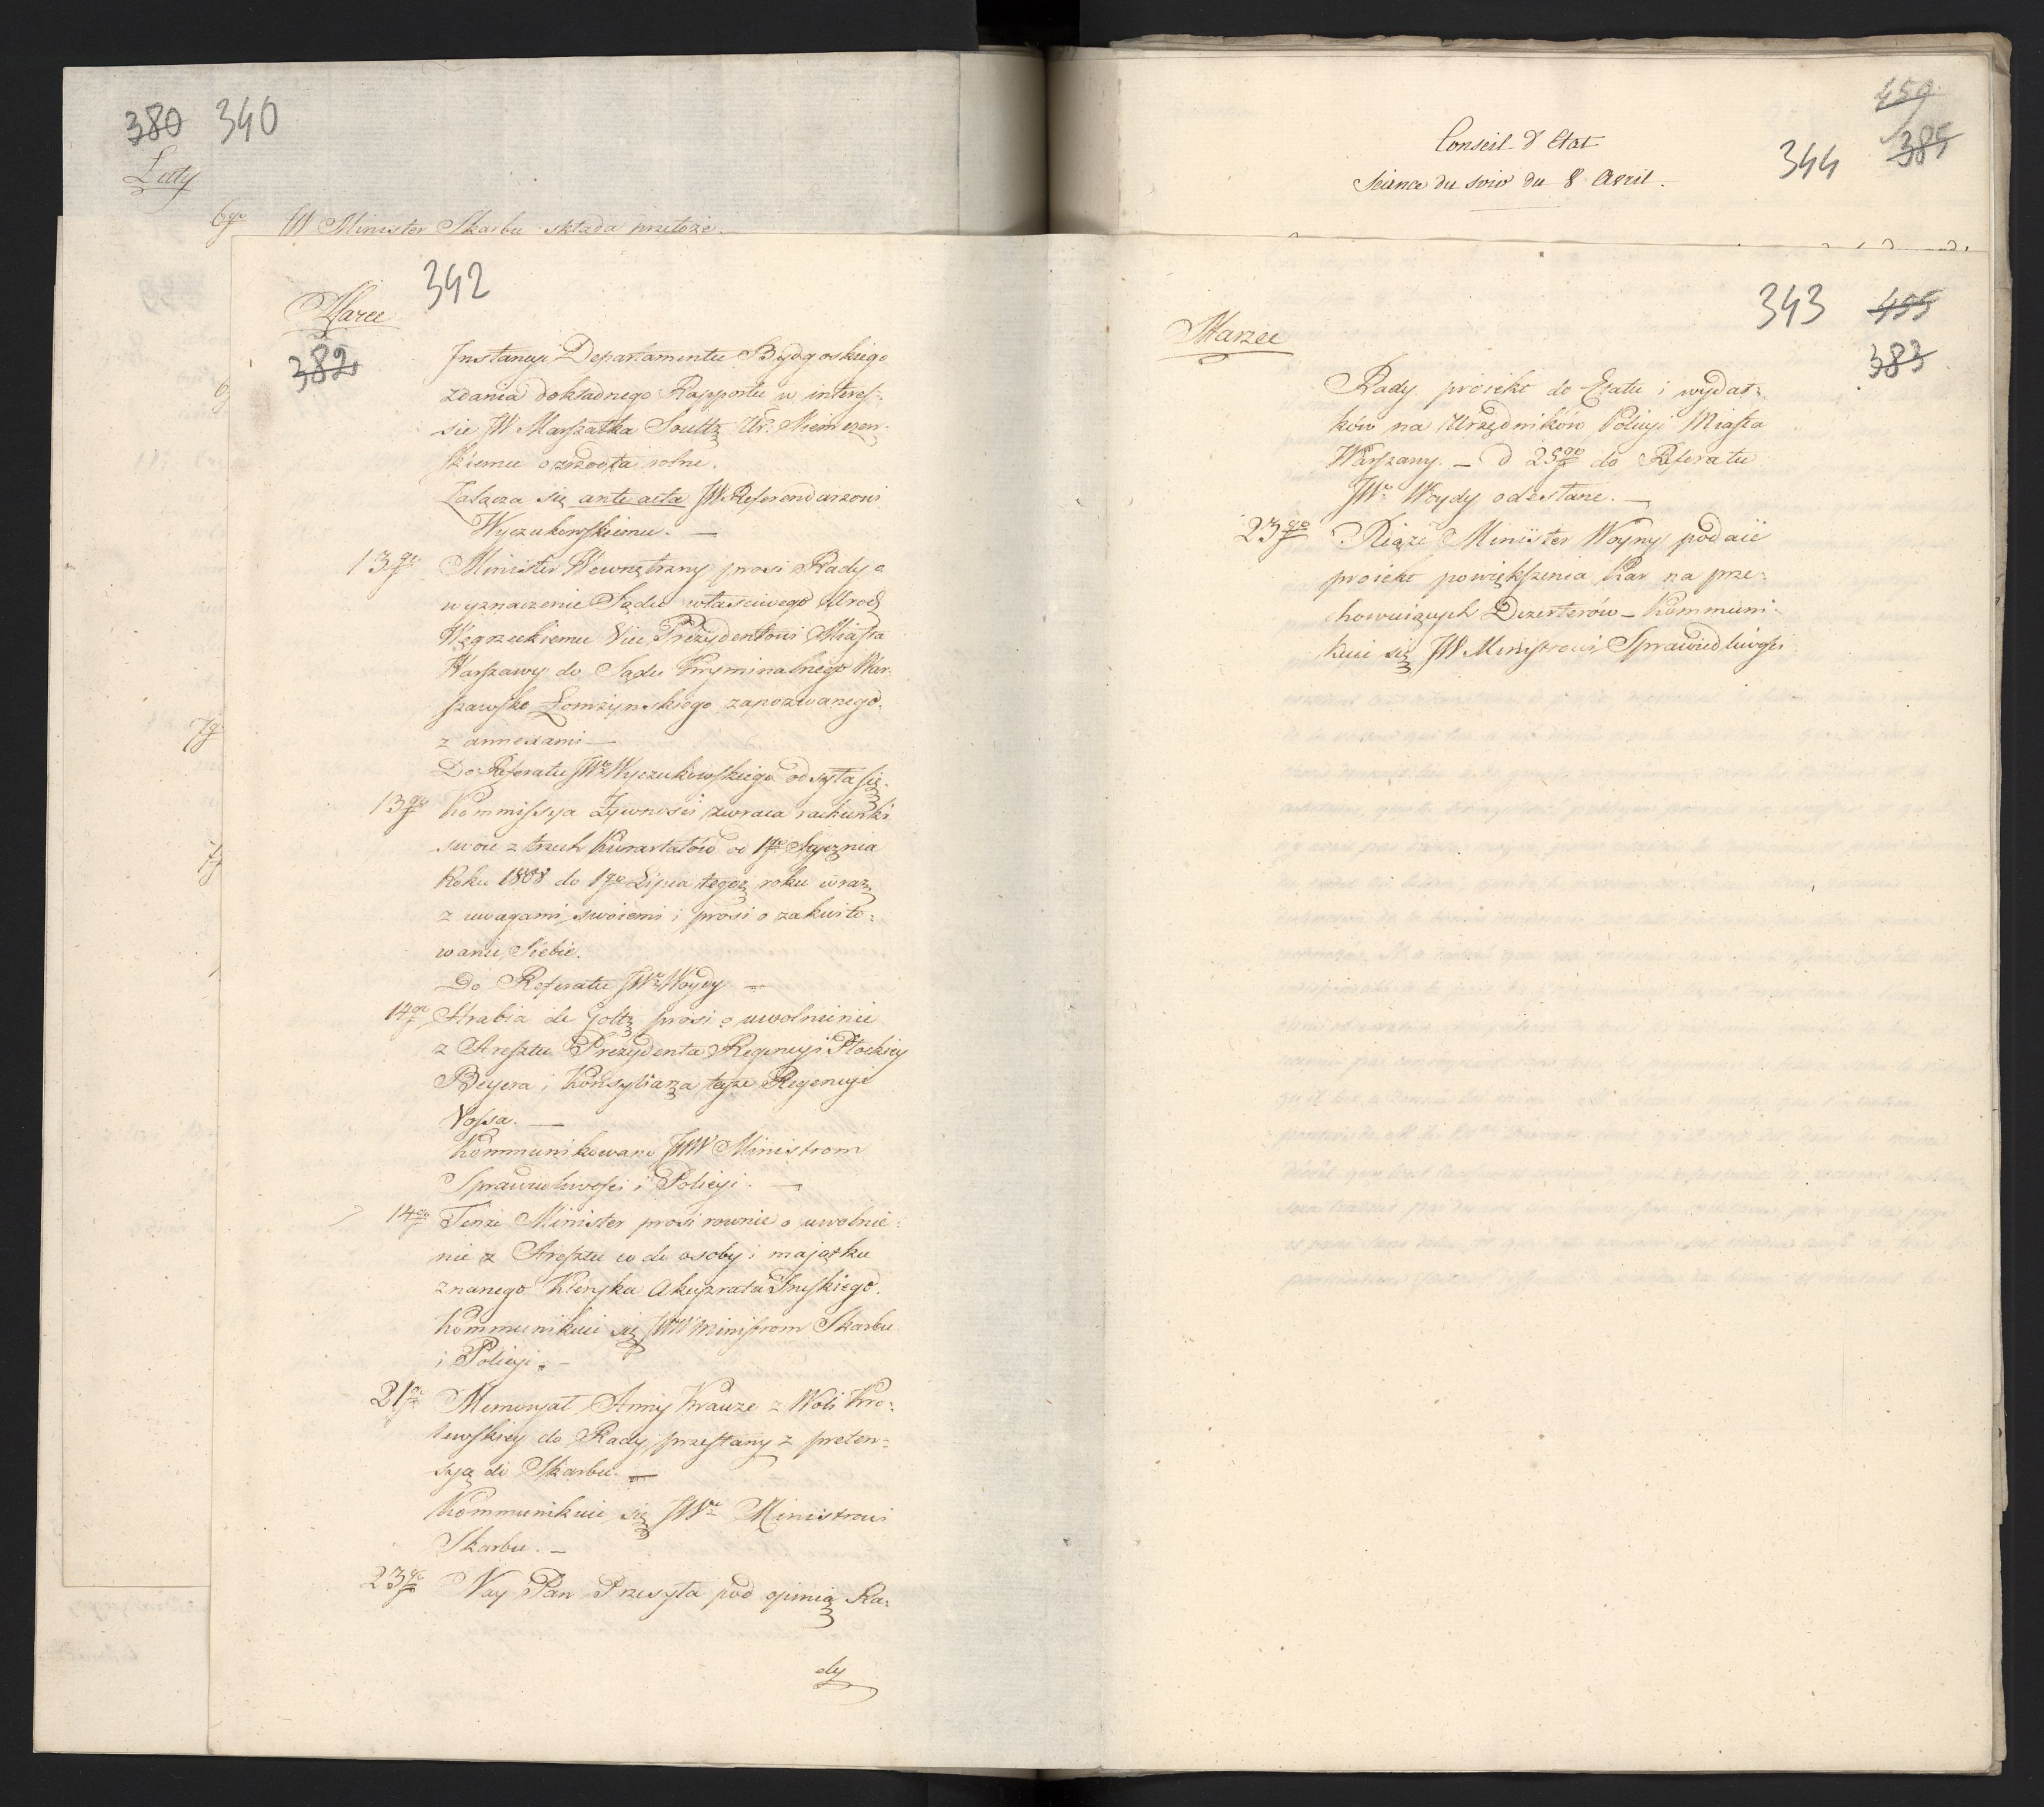 380 340
Luty
6go JW Minister Skarbu składa przełoże
342
Marzec
382
Instancyi Departamentu Bydgoskiego
zdania dokładnego Rapportu w interes-
sie JW Marszałka Soultz Ur. Niemczew-
skiemu
Załącza się ante acta JW Referendarzowi
Wyczechowskiemu. —
13go Minister Wewnętrzny prosi Rady o
wyznaczenie Sądu właściwego Urod.
Węgrzeckiemu Vice Prezydentowi Miasta
Warszawy do Sądu Kryminalnego War-
szawsko Łomżynskiego zapozwanego
z annexami —
Do Referatu JWo Wyczechowskiego odsyła się.
13go Kommissya Żywnosci zwraca rachunki
swoie z trzech Kwartałów od 1go Stycznia
Roku 1808 do 1go Lipca tegoż roku wraz
z uwagami swoiemi i prosi o zakwito-
wanie Siebie.
Do Referatu JWo Woydy —
14go Hrabia de Goltz prosi o uwolnienie
z Aresztu Prezydenta Regencyi Płockiey
Beyera i Konsyliarza teyże Regencyi
Vossa. —
Kommunikowano JWW Ministrom
Sprawiedliwosci i Policyi. —
14go Tenże Minister prosi rownie o uwolnie-
nie z Aresztu co do osoby i majątku
znanego Kleryka Pruskiego.
Kommunikuie się JWW Ministrom Skarbu
i Policyi. —
21go Memoryał Anny Krauze z Woli Kro-
lewskiey do Rady przesłany z preten-
syą do Skarbu. —
Kommunikuie się JWu Ministrowi
Skarbu. —
23go Nay Pan Przesyła pod opinią Ra-
dy
459
Conseil d'Etat
344 385
Séance du soir du 8 Avril.
343 455
Marzec
383
Rady proiekt do Etatu i wydat-
ków na Urzędników Policyi Miasta
Warszawy. — d 25go do Referatu
JWo Woydy odesłane. —
23go Xiąże Minister Woyny podaie
proiekt powiększenia Kar na prze-
chowuiących Dezerterów — Kommuni-
kuie się JW Ministrowi Sprawiedliwości